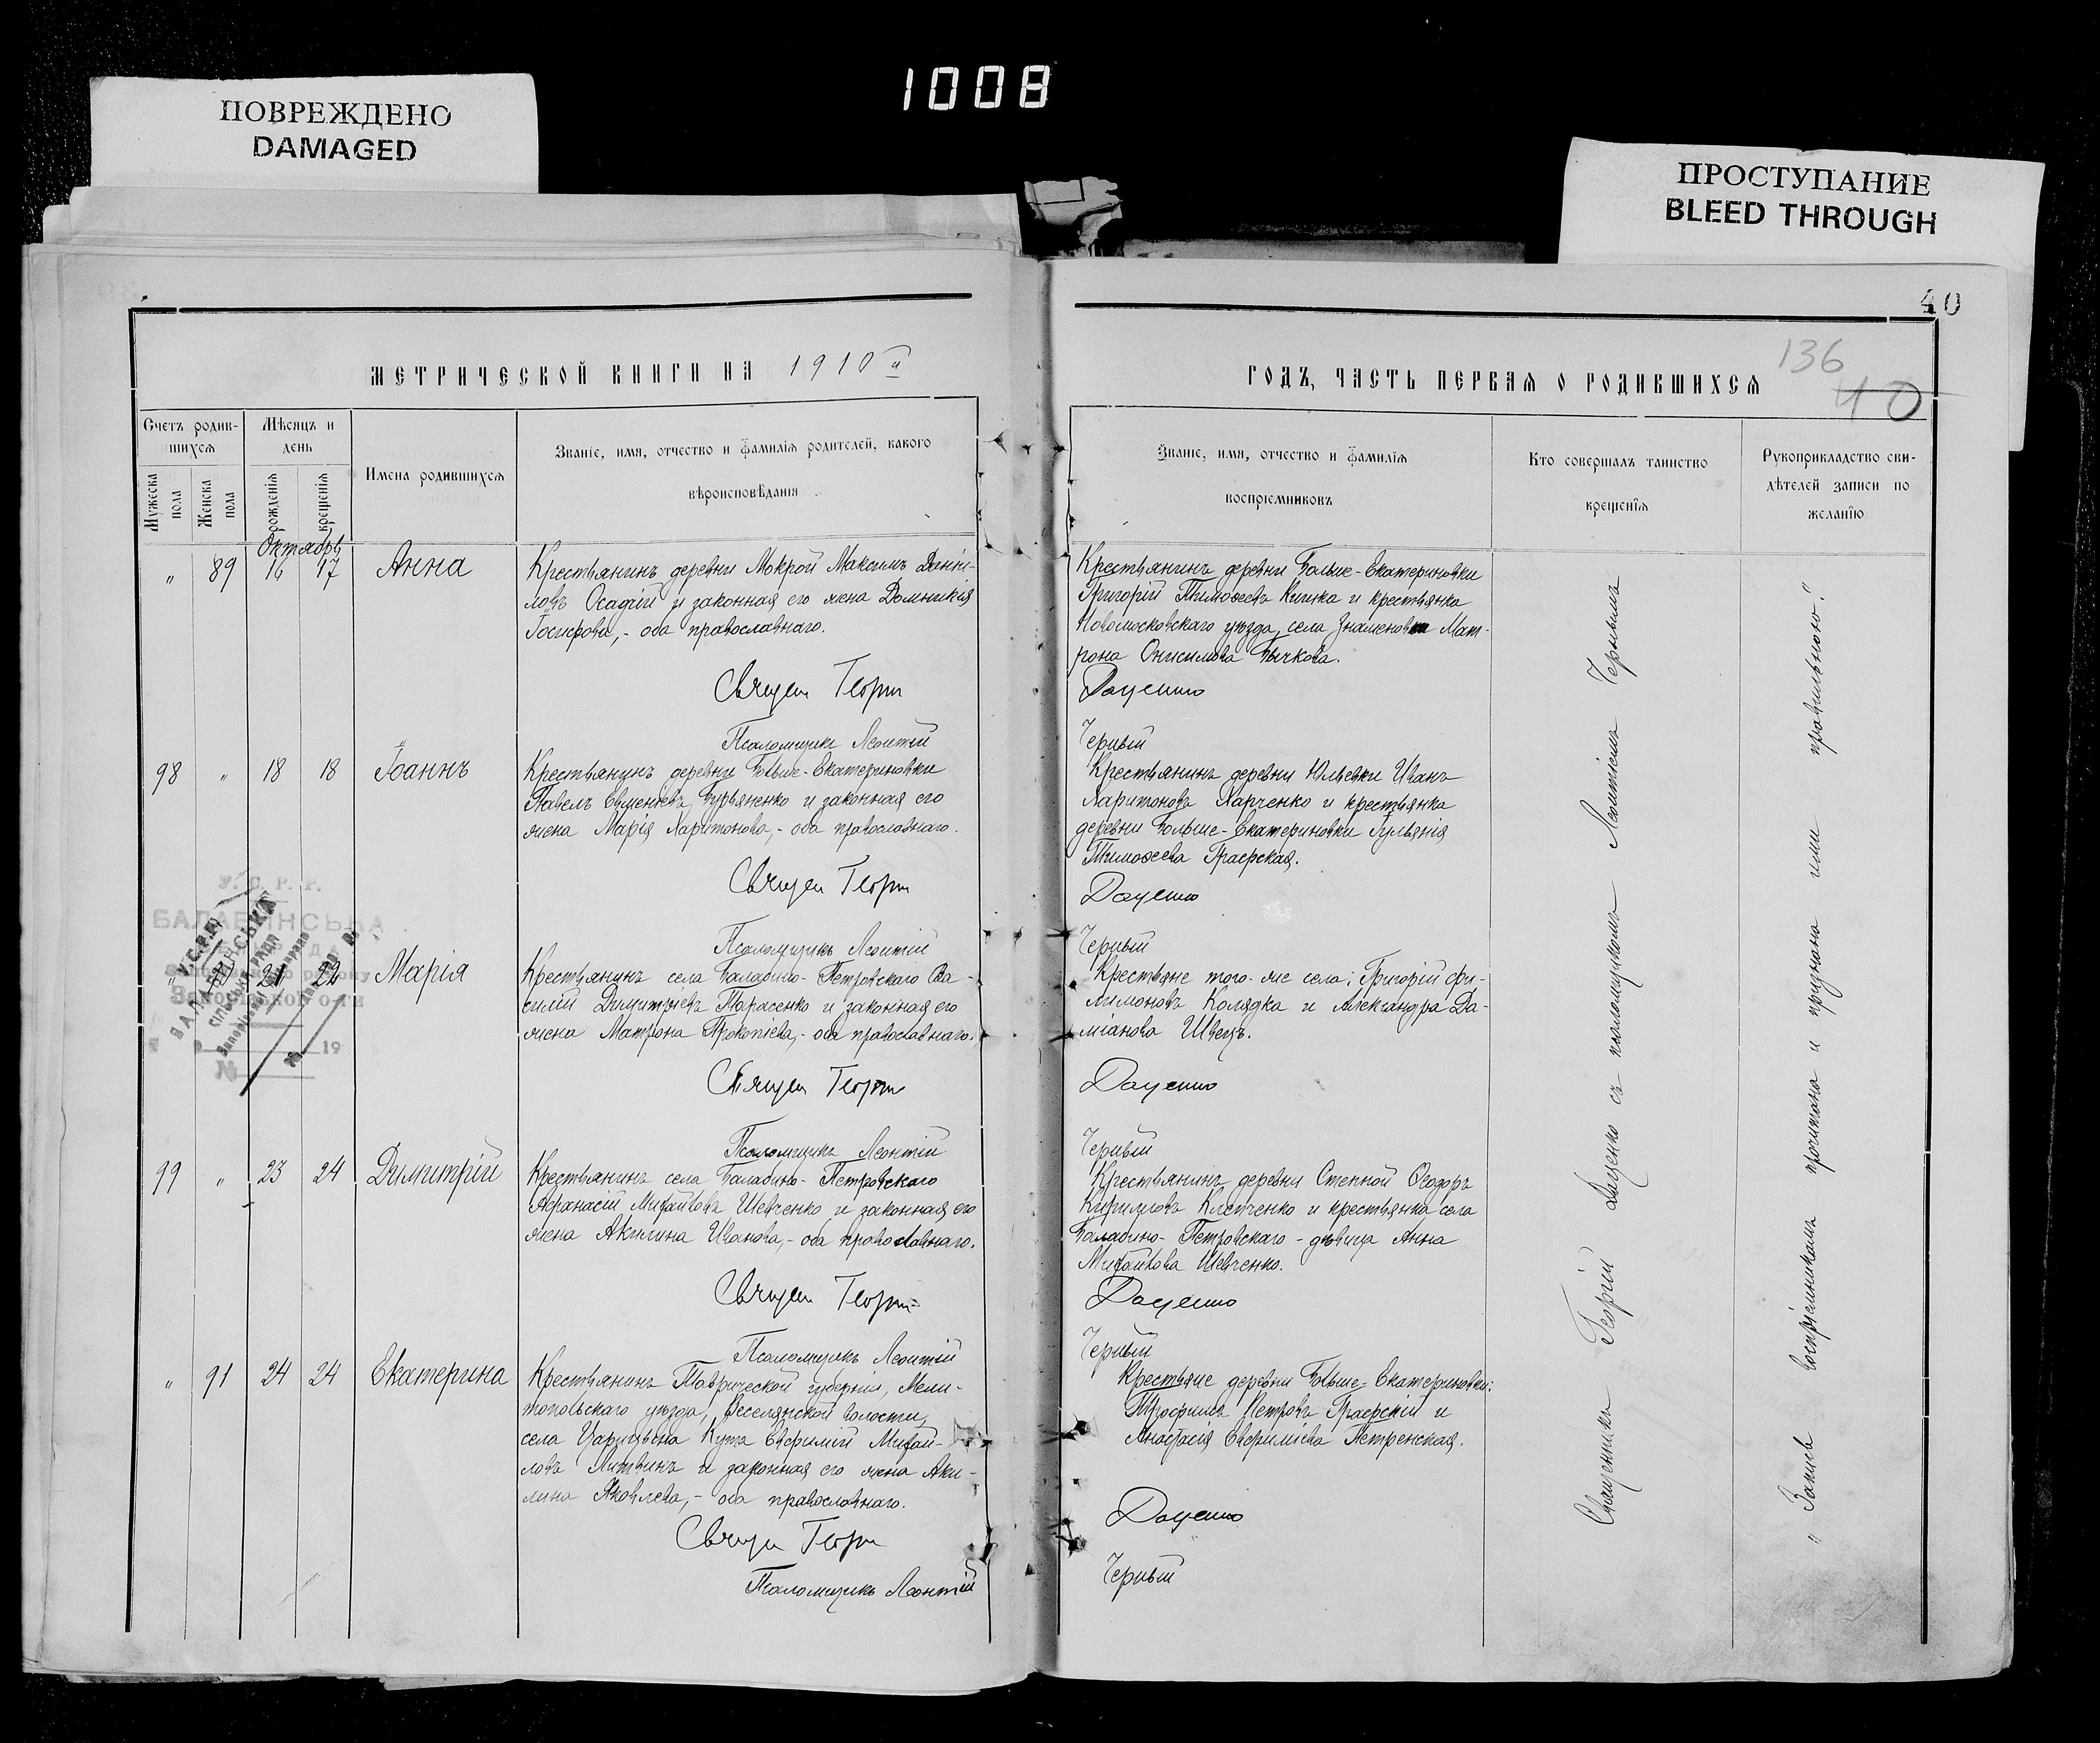 1008
ПОВРЕЖДЕНО
DAMAGED
ПРОСТУПАНИЕ
BLEED THROUGH
40
МЕТРИЧЕСКОЙ КНИГИ НА 1910й
Счетъ родив-
шихся
Мѣсяцъ и
день
Имена родившихся
Званіе, имя, отчество и фамилія родителей, какого
вѣроисповѣданія
Мужеска
пола
Женска
пола
рожденія
крещенія
Октябрь
" 89 16 17 Анна
Крестьянинъ деревни Мокрой Максимъ Дании-
ловъ Осадчій и законная его жена Домникія
православнаго.
Священ Георги
Псаломщикъ Леонтій
98 " 18 18 Іоаннъ
Крестьянинъ деревни Больше-Екатериновки
Павелъ Бурьяненко и законная его
жена Марія Харитонова,- оба православнаго.
Священ Георги
Псаломщикъ Леонтій
У. С. Р. Р.
БАЛАБИНСЬКА
№
19
21 22 Марія
Крестьянинъ села Балабино-Петровскаго Ва-
силій Димитріевъ Тарасенко и законная его
жена Матрона Прокопіева,- оба православнаго.
Священ Георги
Псаломщикъ Леонтій
99 " 23 24 Димитрій
Крестьянинъ села Балабино-Петровскаго
Афанасій Михайловъ Шевченко и законная его
жена Акилина Иванова,- оба православнаго.
Священ Георги
Псаломщикъ Леонтій
" 91 24 24 Екатерина
Крестьянинъ Таврической губерніи, Мели-
топольскаго уѣзда, Веселянской волости,
села Царицына Кута Евфимій Михай-
ловъ Литвинъ и законная его жена Аки-
лина Яковлева,- оба православнаго.
Священ Георги
Псаломщикъ Леонтій
ГОДЪ, ЧАСТЬ ПЕРВАЯ О РОДИВШИХСЯ
136
40
Званіе, имя, отчество и фамилія
воспріемниковъ
Кто совершалъ таинство
крещенія
Рукоприкладство сви-
дѣтелей записи по
желанію
Крестьянинъ деревни Больше-Екатериновки
Григорій Тимоѳеевъ Кишка и крестьянка
Новомосковскаго уѣзда, села Знаменовки Мат-
рона Онисимова Бычкова.
Даценко
Черный
Крестьянинъ деревни Юльевки Иванъ
Харитоновъ Харченко и крестьянка
деревни Больше-Екатериновки Іульянія
Тимоѳеева Граерская.
Даценко
Черный
Крестьяне того-же села: Григорій Фи-
лимоновъ Колядка и Александра Да-
міанова Швецъ.
Даценко
Черный
Крестьянинъ деревни Степной Ѳеодоръ
Кирилловъ Клепченко и крестьянка села
Балабино-Петровскаго - дѣвица Анна
Михайлова Шевченко.
Даценко
Черный
Крестьяне деревни Больше-Екатериновки:
Трофимъ Петровъ Граерскій и
Анастасія Евфиміева Петренская.
Даценко
Черный
Священникъ Георгій Даценко съ псаломщикомъ Леонтіемъ Чернымъ
„Запись воспріемникамъ прочитана и признана ими правильною".